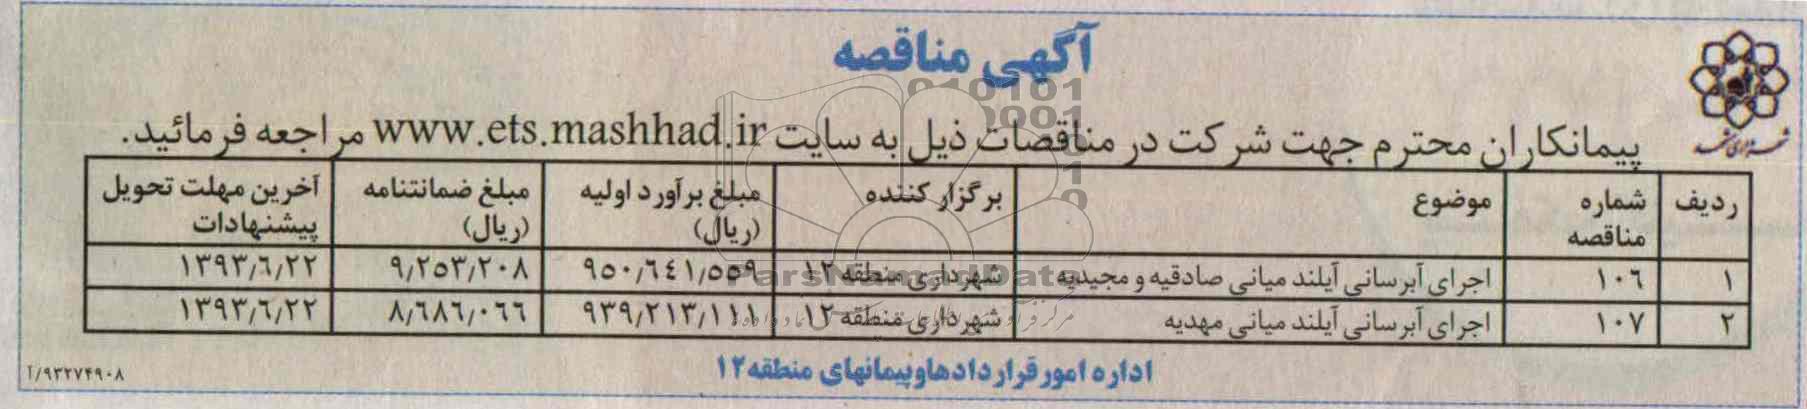 آگهی مناقصه
شهرداری مشهد
پیمانکاران محترم جهت شرکت در مناقصات ذیل به سایت www.ets.mashhad.ir مراجعه فرمائید.
ردیف | شماره مناقصه | موضوع | برگزار کننده | مبلغ برآورد اولیه (ریال) | مبلغ ضمانتنامه (ریال) | آخرین مهلت تحویل پیشنهادات
۱ | ۱۰۶ | اجرای آبرسانی آیلند میانی صادقیه و مجیدیه | شهرداری منطقه ۱۲ | ۹۵۰٫۶۴۱٫۵۵۹ | ۹٫۲۵۳٫۲۰۸ | ۱۳۹۳٫۶٫۲۲
۲ | ۱۰۷ | اجرای آبرسانی آیلند میانی مهدیه | شهرداری منطقه ۱۲ | ۹۳۹٫۲۱۳٫۱۱۱ | ۸٫۶۸۶٫۰۶۶ | ۱۳۹۳٫۶٫۲۲
اداره امور قراردادها و پیمانهای منطقه ۱۲
۹۳۲۷۴۹۰۸/آ
ParsNamadData